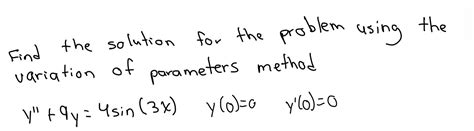 Find the solution for the problem using the
variation of parameters method
y'' + 9y = 4sin(3x) y(0)=0 y'(0)=0